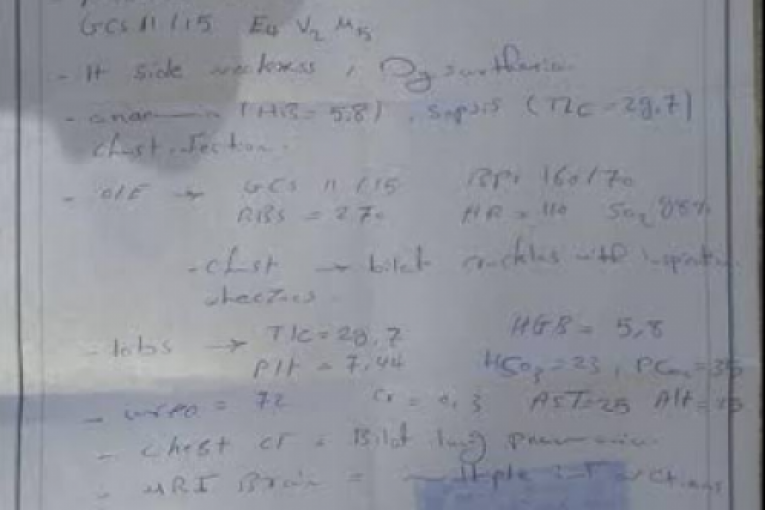 GCS 11/15 E4 V2 M5
- lt side weakness, Dysarthria
- (HB = 5,8), sepsis (TLC = 29,7)
chest infection.
- O/E → GCS 11/15 BP: 160/70
RBS = 270 HR = 110 SO2 88%
- chest → bilat crackles with
wheezes.
- labs → TLC = 29,7 HGB = 5,8
Plt = 7,44 HSO3 = 23, PCO2 = 35
- = 72 Cr = 0,3 AST = 25 Alt =
- Chest CT = Bilat lung pneumonia.
- MRI Brain = multiple infarctions